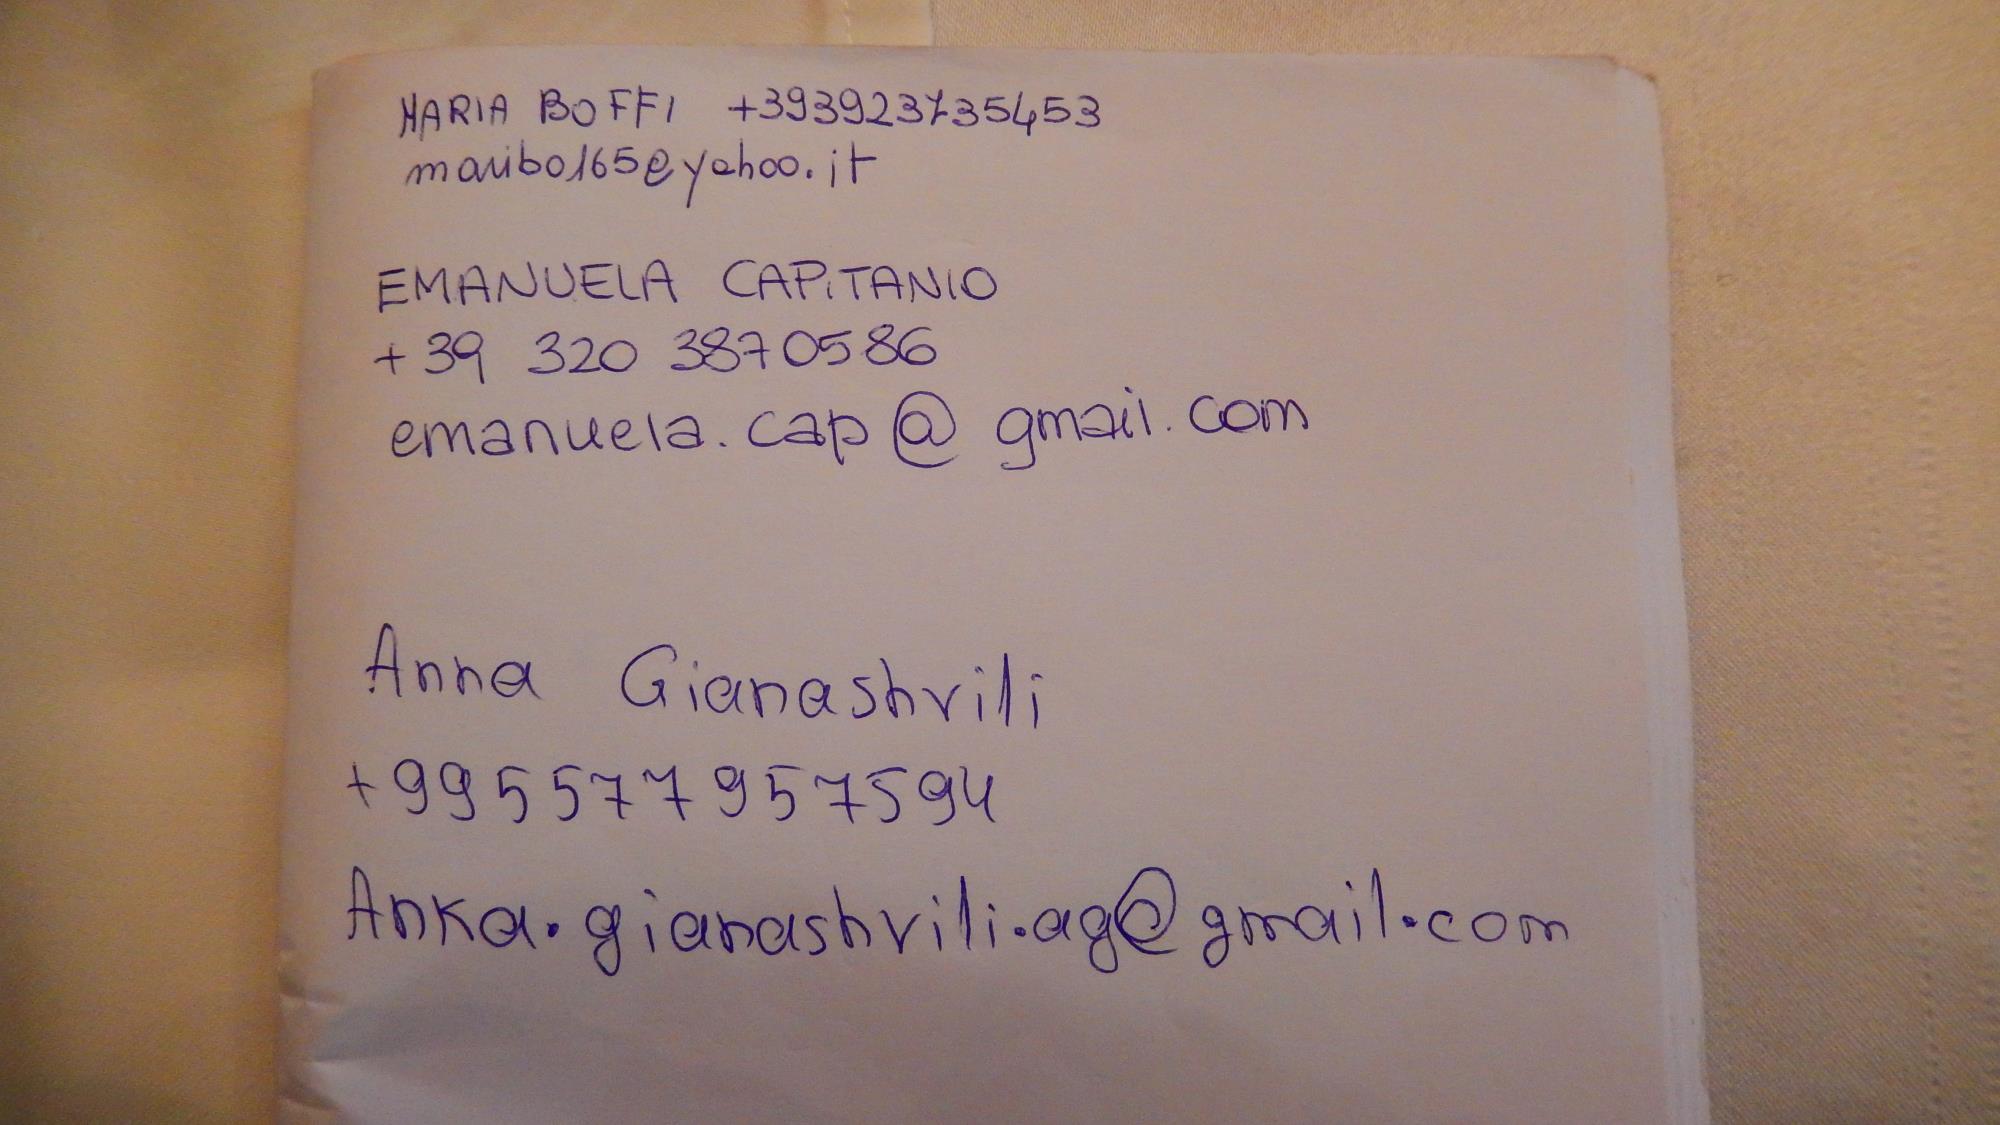 MARIA BOFFI +393923735453
maribo165@yahoo.it
EMANUELA CAPITANIO
+39 320 3870586
emanuela.cap@gmail.com
Anna Gianashvili
+995577957594
Anka.gianashvili.ag@gmail.com